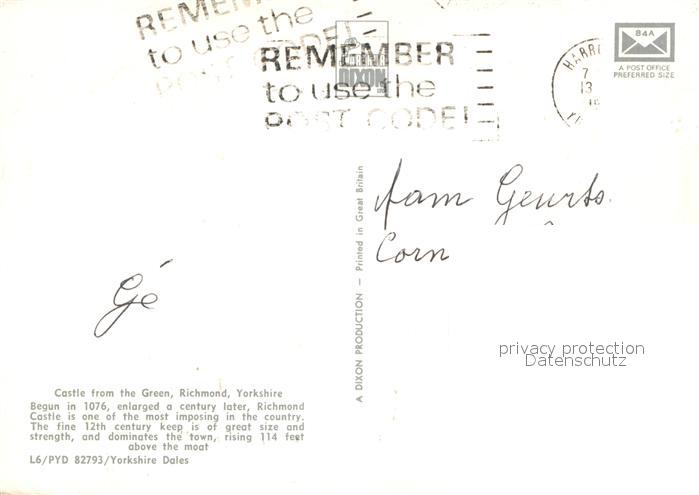 REMEM
to use the
REMEMBER
to use the
POST CODE!
DIXON
HARR
7
13
84A
A POST OFFICE
PREFERRED SIZE
fam Geurts.
Corn
Gé
A DIXON PRODUCTION — Printed in Great Britain
privacy protection
Datenschutz
Castle from the Green, Richmond, Yorkshire
Begun in 1076, enlarged a century later, Richmond
Castle is one of the most imposing in the country.
The fine 12th century keep is of great size and
strength, and dominates the town, rising 114 feet
above the moat
L6/PYD 82793/Yorkshire Dales